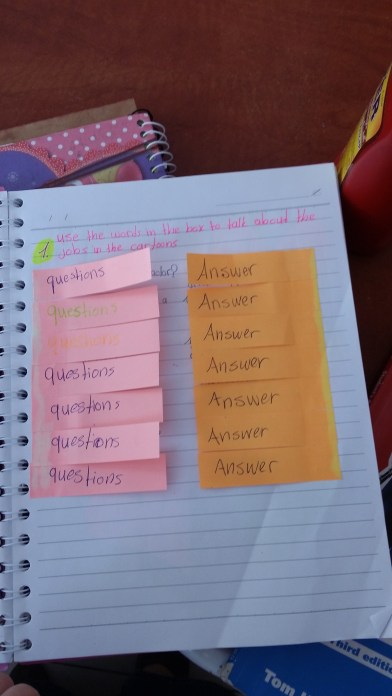 1. use the words in the box to talk about the
jobs in the cartoons
questions Answer
questions Answer
questions Answer
questions Answer
questions Answer
questions Answer
questions Answer
Tom
Third edition